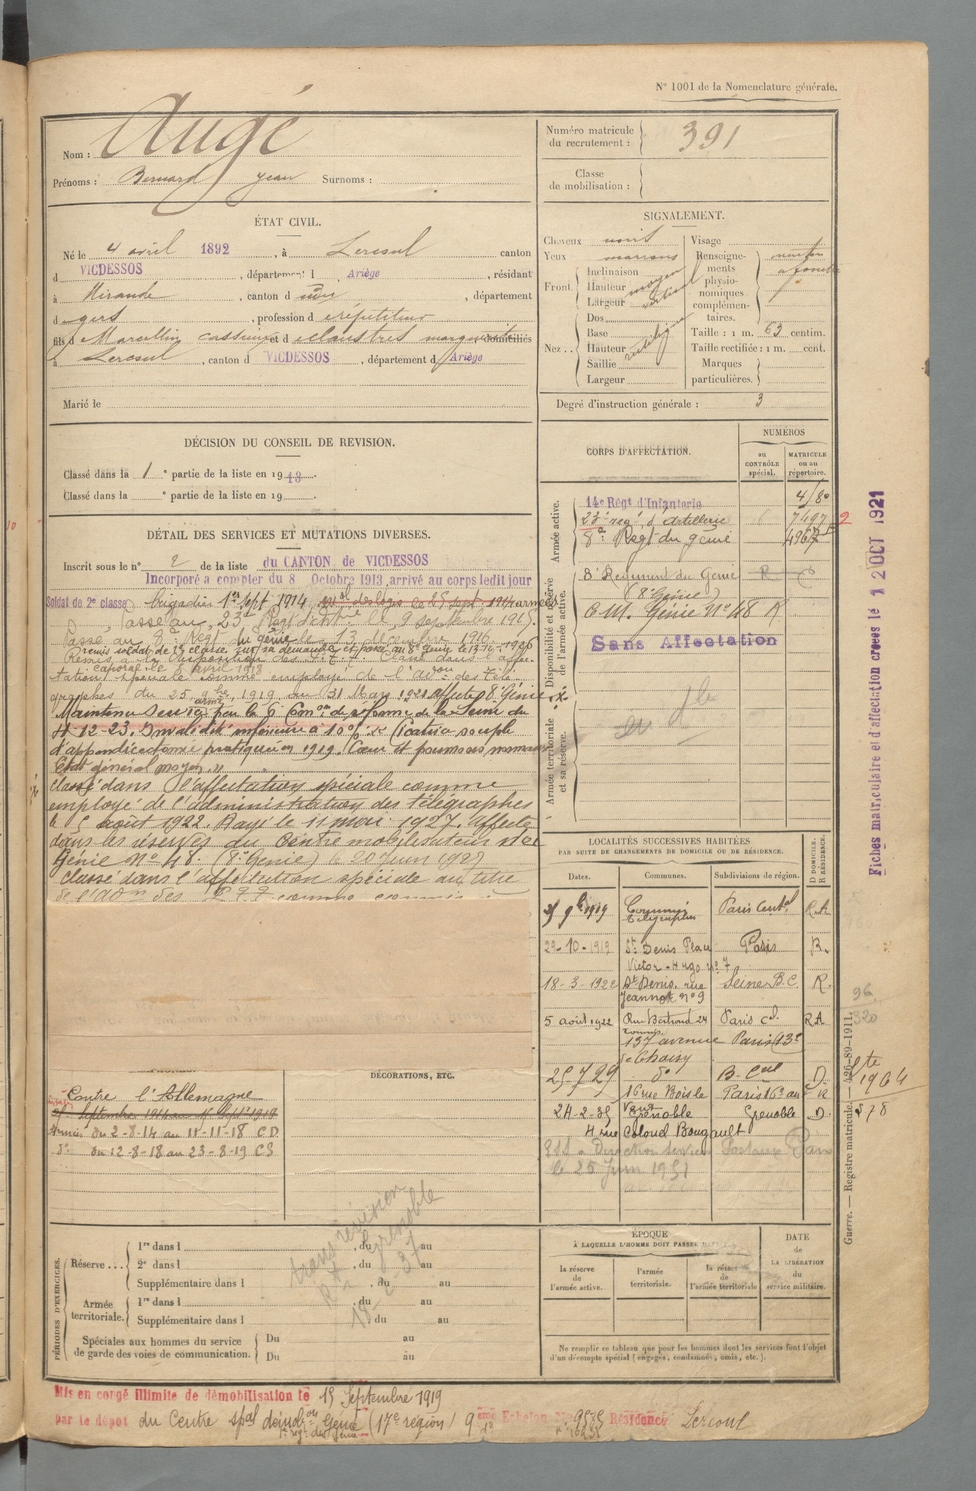 N° 1001 de la Nomenclature générale.
Nom : Augé
Prénoms : Bernard Jean Surnoms :
Numéro matricule du recrutement : 391
Classe de mobilisation :
ÉTAT CIVIL.
Né le 4 avril 1892, à Lercoul canton
d VICDESSOS, département d Ariège, résidant
à Mirande, canton d dudit, département
d gers, profession d répétiteur
fils d Marcellin Cassien et d domiciliés
à Lercoul, canton d VICDESSOS, département d Ariège
Marié le
SIGNALEMENT.
Cheveux noirs
Yeux marrons
Front.
Inclinaison
Hauteur moyen
Largeur vertical
Nez..
Dos
Base
Hauteur rectiligne
Saillie
Largeur
Visage
Renseignements physionomiques complémentaires.
Taille : 1 m. 63 centim.
Taille rectifiée : 1 m. cent.
Marques particulières.
Degré d'instruction générale : 3
DÉCISION DU CONSEIL DE REVISION.
Classé dans la 1e partie de la liste en 1913.
Classé dans la e partie de la liste en 19 .
CORPS D'AFFECTATION.
NUMÉROS
au CONTRÔLE spécial.
MATRICULE ou au répertoire.
Armée active.
14e Régt d'Infanterie
23e reg. d'artillerie 7497
8e Regt du génie 4967
Disponibilité et réserve de l'armée active.
8e Régiment du Génie
(8e Génie)
C M. Génie N° 48 R
Sans Affectation
Armée territoriale et sa réserve.
DÉTAIL DES SERVICES ET MUTATIONS DIVERSES.
Inscrit sous le n° 2 de la liste du CANTON de VICDESSOS
Incorporé à compter du 8 Octobre 1913, arrivé au corps ledit jour
Soldat de 2e classe brigadier 1er sept 1914 mal des logis le 25 sept. 1914
Passé au 23e Regt d'artrie le 9 septembre 1915.
Passé au 8e Regt du génie le 13 décembre 1916
remis soldat de 2e classe sur sa demande et passé au 8e Génie le
caporal le avril 1918
Remis à la disposition des P.T.T. Classé dans l'affectation
spéciale comme employé de l'adon des télégraphes
du 25 9bre 1919 au 31 Mars 1921 Affecté 8e Génie
Maintenu service armé par la 6e Comon de réforme de la Seine du
4-12-23. Invalidité inférieure à 10 %. Cicatrice souple
d'appendicectomie pratiquée en 1919. Cœur et poumons normaux
Etat général moyen.
Classé dans l'affectation spéciale comme
employé de l'administration des télégraphes
le 5 août 1922. Rayé le 11 mai 1927. Affecté
dans les réserves du Centre mobilisateur de
Génie N° 48. (8e Génie) le 20 Juin 1927
Classé dans l'affectation spéciale au titre
de l'adon des P.T.T. comme
Contre l'Allemagne
Armées du 2-8-14 au 11-11-18 C.D.
d° du 12-8-18 au 23-8-19 C S
DÉCORATIONS, ETC.
LOCALITÉS SUCCESSIVES HABITÉES
PAR SUITE DE CHANGEMENTS DE DOMICILE OU DE RÉSIDENCE.
Dates.
Communes.
Subdivisions de région.
D DOMICILE. R RÉSIDENCE.
25 9bre 1919 Commis Télégraphes Paris Central R.A
29-10-1919 St Denis Place Victor-Hugo n° 7 Paris R.
18-3-1922 St Denis, rue Jeannot n° 9 Seine B.C. R.
5 août 1922 Rue Bertrand 24 Paris cal RA
137 avenue de Choisy Paris (13e
25-7-29 d° B. Cal D.
16 rue Bois le Vent Paris 16e
24-2-35 Grenoble Grenoble D.
4 rue Colonel Bougault
Direction services Postaux Paris
le 25 Juin 1951
PÉRIODES D'EXERCICES.
Réserve...
1re dans l , du au
2e dans l , du au
Supplémentaire dans l , du au
Armée territoriale.
1re dans l , du au
Supplémentaire dans l du au
Spéciales aux hommes du service de garde des voies de communication.
Du au
Du au
Grenoble
ÉPOQUE
À LAQUELLE L'HOMME DOIT PASSER DANS
la réserve de l'armée active.
l'armée territoriale.
la réserve de l'armée territoriale.
DATE de LA LIBÉRATION du service militaire.
Ne remplir ce tableau que pour les hommes dont les services font l'objet d'un décompte spécial (engagés, condamnés, omis, etc.).
Mis en congé illimité de démobilisation le 15 Septembre 1919
par le dépôt du Centre spal démobon Génie (17e région) 9ème Echelon N° 9575 Résidence Lercoul
Fiches matriculaire et d'affectation créées le 12 OCT 1921
96
320
1964
578
Guerre. — Registre matricule. — 426-89-1911.